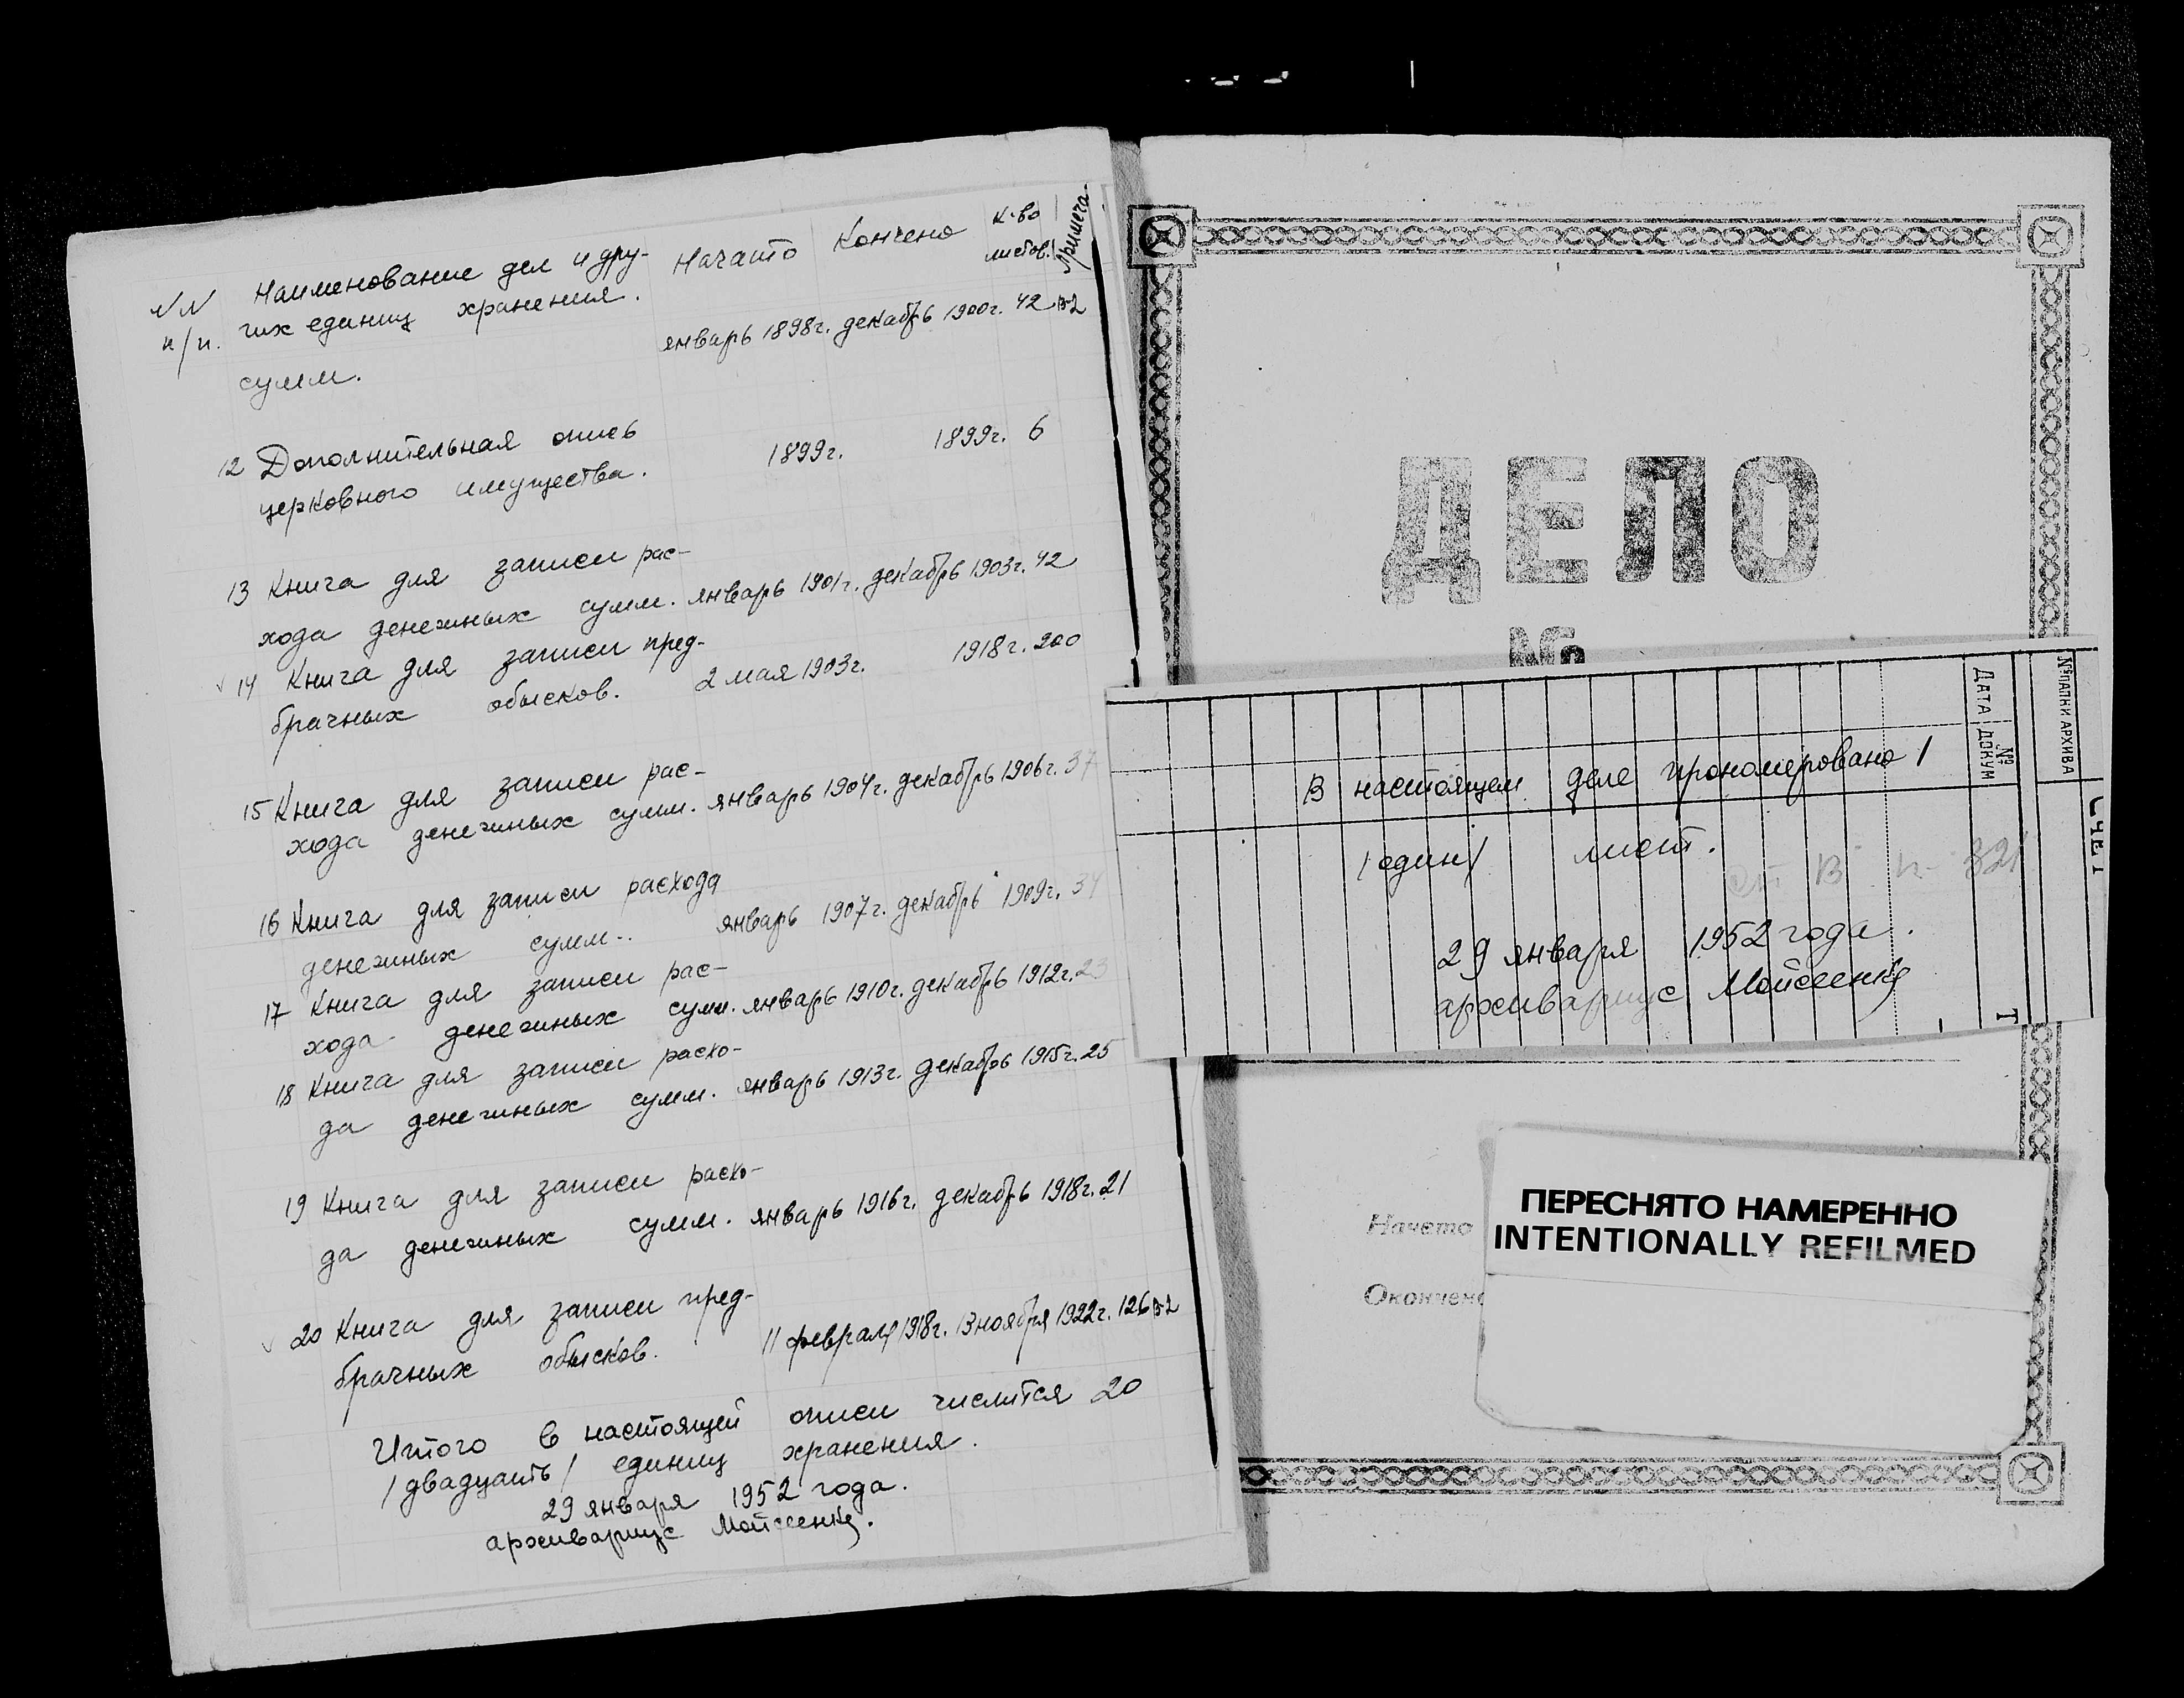 NN Наименование дел и дру- Начато Кончено к-во Примеча.
п/п. гих единиц хранения. листов.
январь 1898г. декабрь 1900г. 42
сумм.
12 Дополнительная опись 1899г. 1899г. 6
церковного имущества.
13 Книга для записи рас-
хода денежных сумм. январь 1901г. декабрь 1903г. 42
14 Книга для записи пред-
брачных обысков. 2 мая 1903г. 1918г. 200
15 Книга для записи рас-
хода денежных сумм. январь 1904г. декабрь 1906г. 37
16 Книга для записи расхода
денежных сумм.. январь 1907г. декабрь 1909г. 34
17 Книга для записи рас-
хода денежных сумм. январь 1910г. декабрь 1912г. 23
18 Книга для записи расхо-
да денежных сумм. январь 1913г. декабрь 1915г. 25
19 Книга для записи расхо-
да денежных сумм. январь 1916г. декабрь 1918г. 21
20 Книга для записи пред-
брачных обысков. 11 февраля 1918г. 13 ноября 1922г. 126
Итого в настоящей описи числится 20
/двадцать/ единиц хранения.
29 января 1952 года.
архивариус Мойсеенко.
ДЕЛО
№
№ ПАПКИ АРХИВА
ДАТА
№ ДОКУМ
СЧЕТ
В настоящем деле прономеровано 1
/один/ лист.
321
29 января 1952 года.
архивариус Мойсеенко
Начето
Окончено
ПЕРЕСНЯТО НАМЕРЕННО
INTENTIONALLY REFILMED